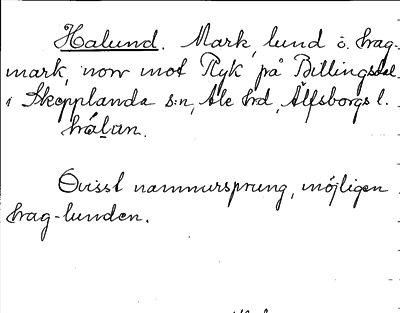 Halund. Mark, lund o. hag-
mark, norr mot Ryk, på Billingsdal
i Skepplanda s:n, Ale hd, Älfsborgs l.
hálun.
Ovisst namnursprung, möjligen
hag-lunden.